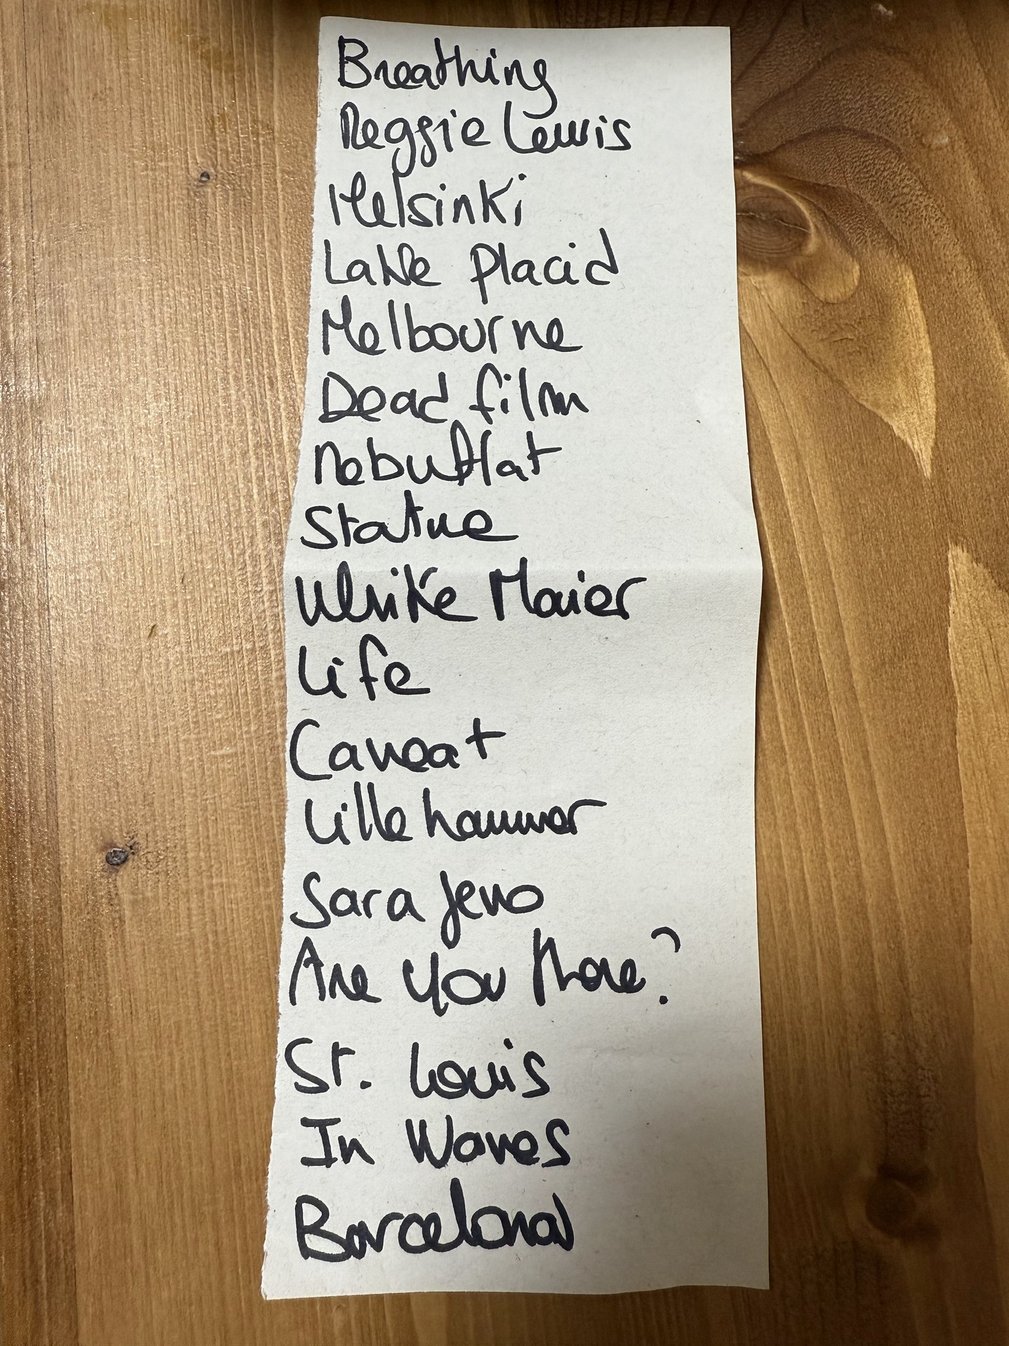 Breathing
Reggie Lewis
Helsinki
Lake Placid
Melbourne
Dead film
Statue
Ulrike Maier
Life
Caveat
Lillehammer
Sarajevo
Are you there?
St. Louis
In Waves
Barcelona